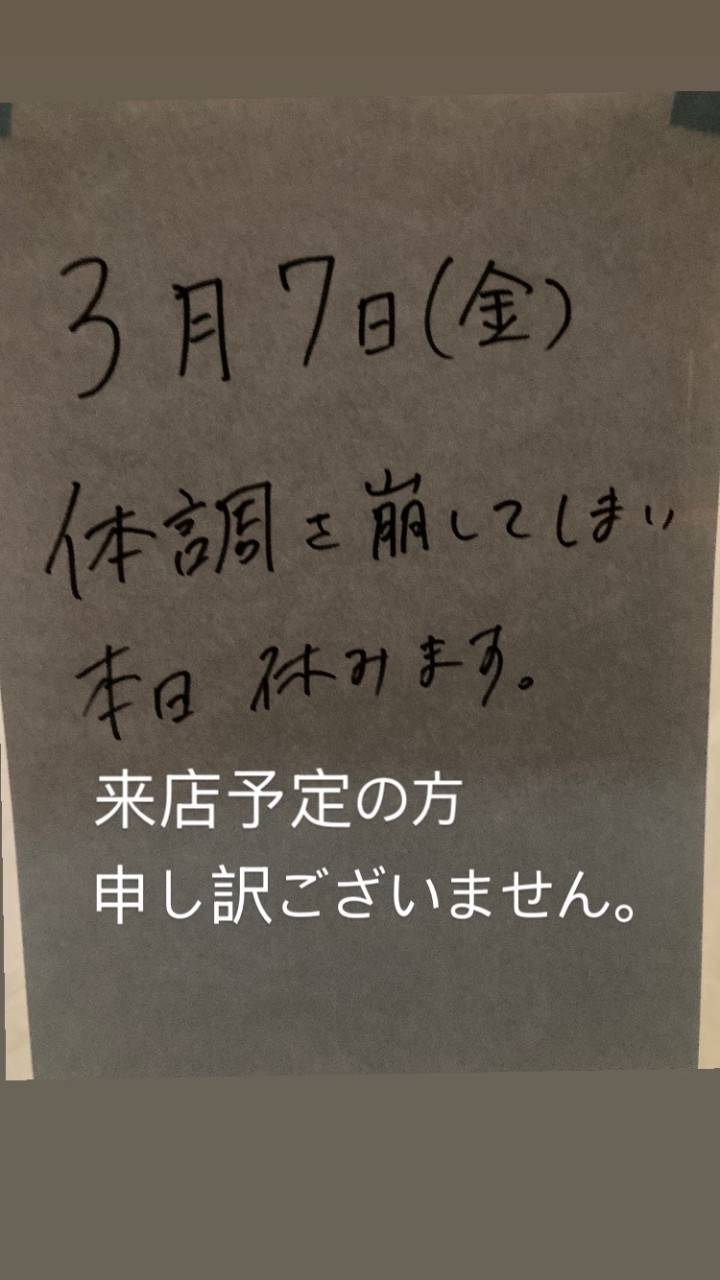 3月7日(金)
体調を崩してしまい
本日 休みます。
来店予定の方
申し訳ございません。